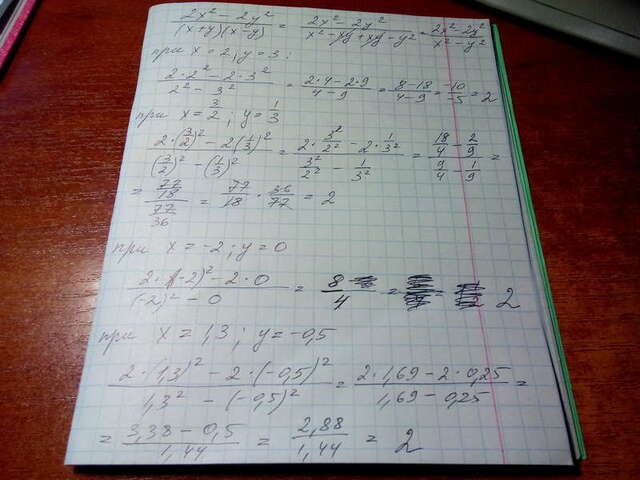 (2x² - 2y²)/((x+y)(x-y)) = (2x² - 2y²)/(x² - xy + xy - y²) = (2x² - 2y²)/(x² - y²)
при x = 2, y = 3:
(2·2² - 2·3²)/(2² - 3²) = (2·4 - 2·9)/(4 - 9) = (8 - 18)/(4 - 9) = (-10)/(-5) = 2
при x = 3/2; y = 1/3
(2·(3/2)² - 2(1/3)²)/((3/2)² - (1/3)²) = (2·3²/2² - 2·1/3²)/(3²/2² - 1/3²) = (18/4 - 2/9)/(9/4 - 1/9) =
= (77/18)/(77/36) = 77/18 · 36/77 = 2
при x = -2; y = 0
(2·(-2)² - 2·0)/((-2)² - 0) = 8/4 = 2
при x = 1,3; y = -0,5
(2·(1,3)² - 2·(-0,5)²)/(1,3² - (-0,5)²) = (2·1,69 - 2·0,25)/(1,69 - 0,25) =
= (3,38 - 0,5)/1,44 = 2,88/1,44 = 2